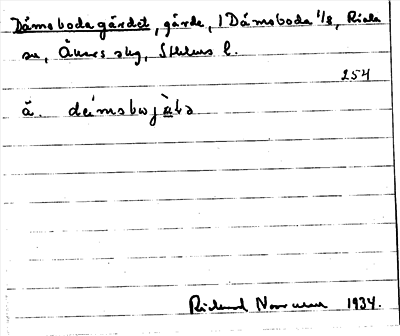 Dámsbodagärdet, gärde, 1 Dámsboda 1/8, Riala
sn, Åkers skg, Sthlms l.
254
ǎ. deímsbojàta
Rickard Norrman 1934.